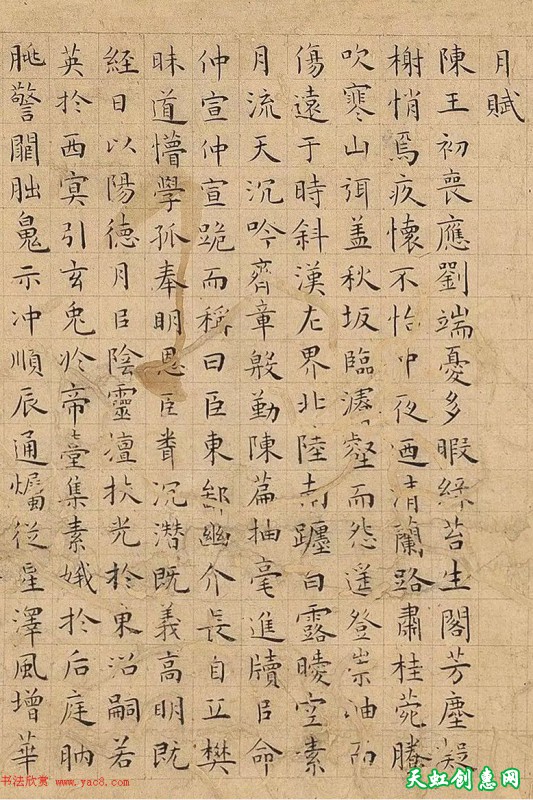 月賦
陳王初喪應劉端憂多暇緑苔生閣芳塵凝
榭悄焉疚懷不怡中夜迺清蘭路肅桂菀騰
吹寒山弭盖秋坂臨濬壑而怨遥登崇岫而
傷遠于時斜漢左界北陸南躔白露曖空素
月流天沉吟齊章殷勤陳篇抽毫進牘以命
仲宣仲宣跪而稱曰臣東鄙幽介長自丘樊
昧道懵學孤奉明恩臣聞沉潛既義高明既
經日以陽德月以陰靈擅扶光於東沼嗣若
英於西冥引玄兔於帝臺集素娥於后庭朒
朓警闕朏魄示冲順辰通燭從星澤風增華
书法欣赏 www.yac8.com
天虹创惠网